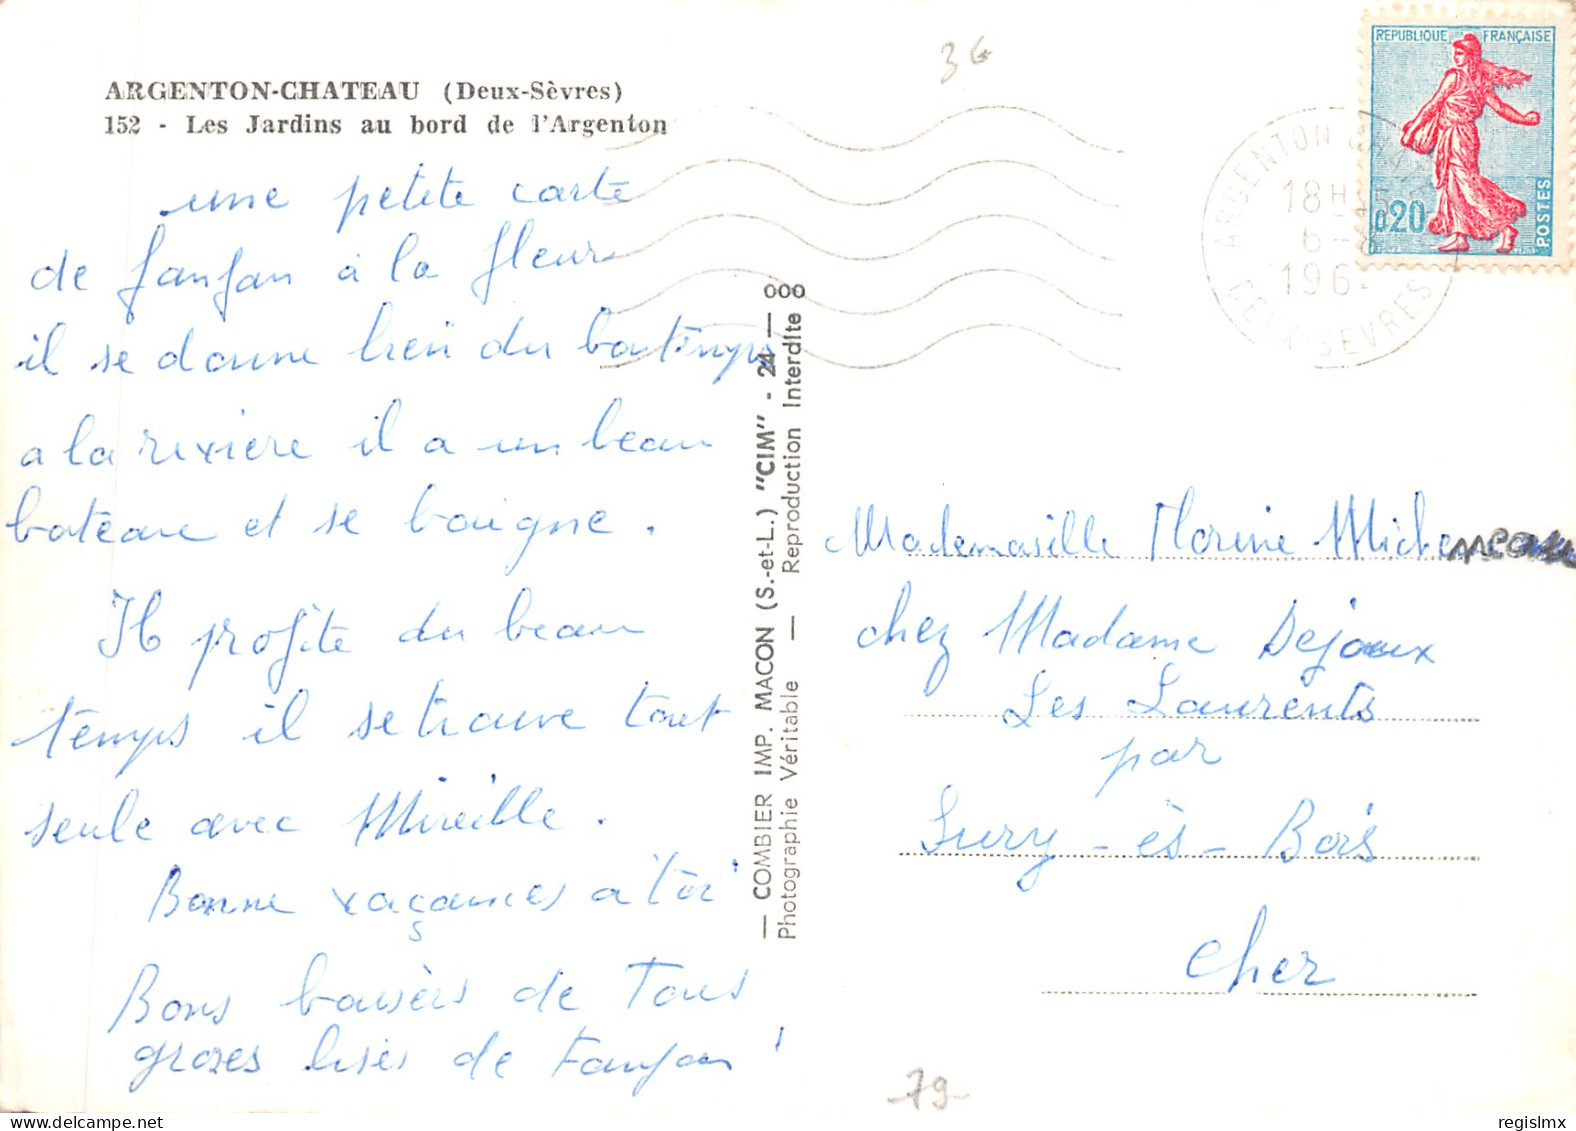 ARGENTON-CHATEAU (Deux-Sèvres)
152 - Les Jardins au bord de l'Argenton
une petite carte
de fanfan à la fleur
il se donne bien du bontemps
a la rivière il a un beau
bateau et se baigne.
Il profite du beau
temps il se trouve tout
seule avec Mireille.
Bonne vacances a toi
Bons baisers de Tous
groses bises de Fanfan !
— COMBIER IMP. MACON (S.-et-L.) "CIM" - 24 — ooo
Photographie Véritable — Reproduction Interdite
36
REPUBLIQUE FRANÇAISE
0,20
POSTES
ARGENTON CHATEAU
18H
6-8
196
DEUX-SEVRES
Mademoiselle Florine
chez Madame Dejoux
Les Laurents
par
Sury-ès-Bois
Cher
-79-
regislmx